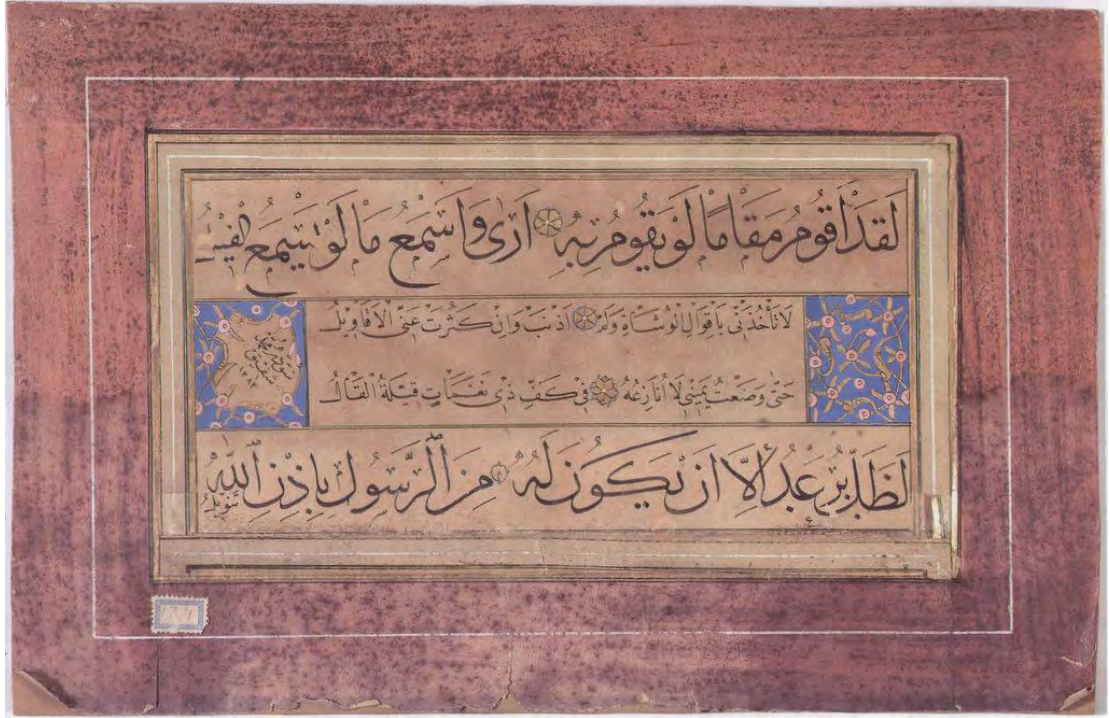 لَقَدْ اَقُومُ مَقَامًا لَوْ يَقُومُ بِهِ اَرٰى وَاَسْمَعُ مَا لَوْ يَسْمَعُ الْفِيلُ
لَا تَأْخُذَنِّى بِاَقْوَالِ الْوُشَاةِ وَلَمْ اُذْنِبْ وَاِنْ كَثُرَتْ عَنِّى الْاَقَاوِيلُ
حَتّٰى وَضَعْتُ يَمِينِى لَا اُنَازِعُهُ فِى كَفِّ ذِى نَغَمَاتٍ قِيلَهُ الْقَالُ
لَظَلَّ يُرْعَدُ اِلَّا اَنْ يَكُونَ لَهُ مِنَ الرَّسُولِ بِاِذْنِ اللّٰهِ تَنْوِيلُ